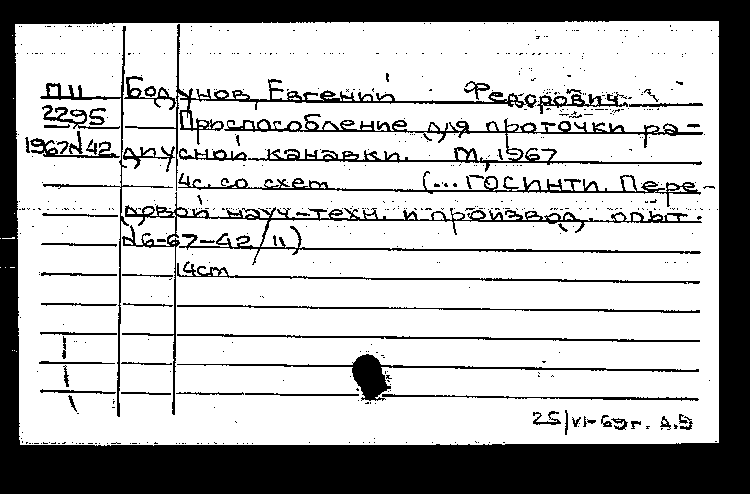 П11 Бодунов, Евгений Федорович.
2295 Приспособление для проточки ра-
1967№42 диусной канавки. М., 1967
4с. со схем (... ГОСИНТИ. Пере-
довой науч-техн. и производ. опыт.
№6-67-42/11)
14cm
25/VI-69г. А.Э